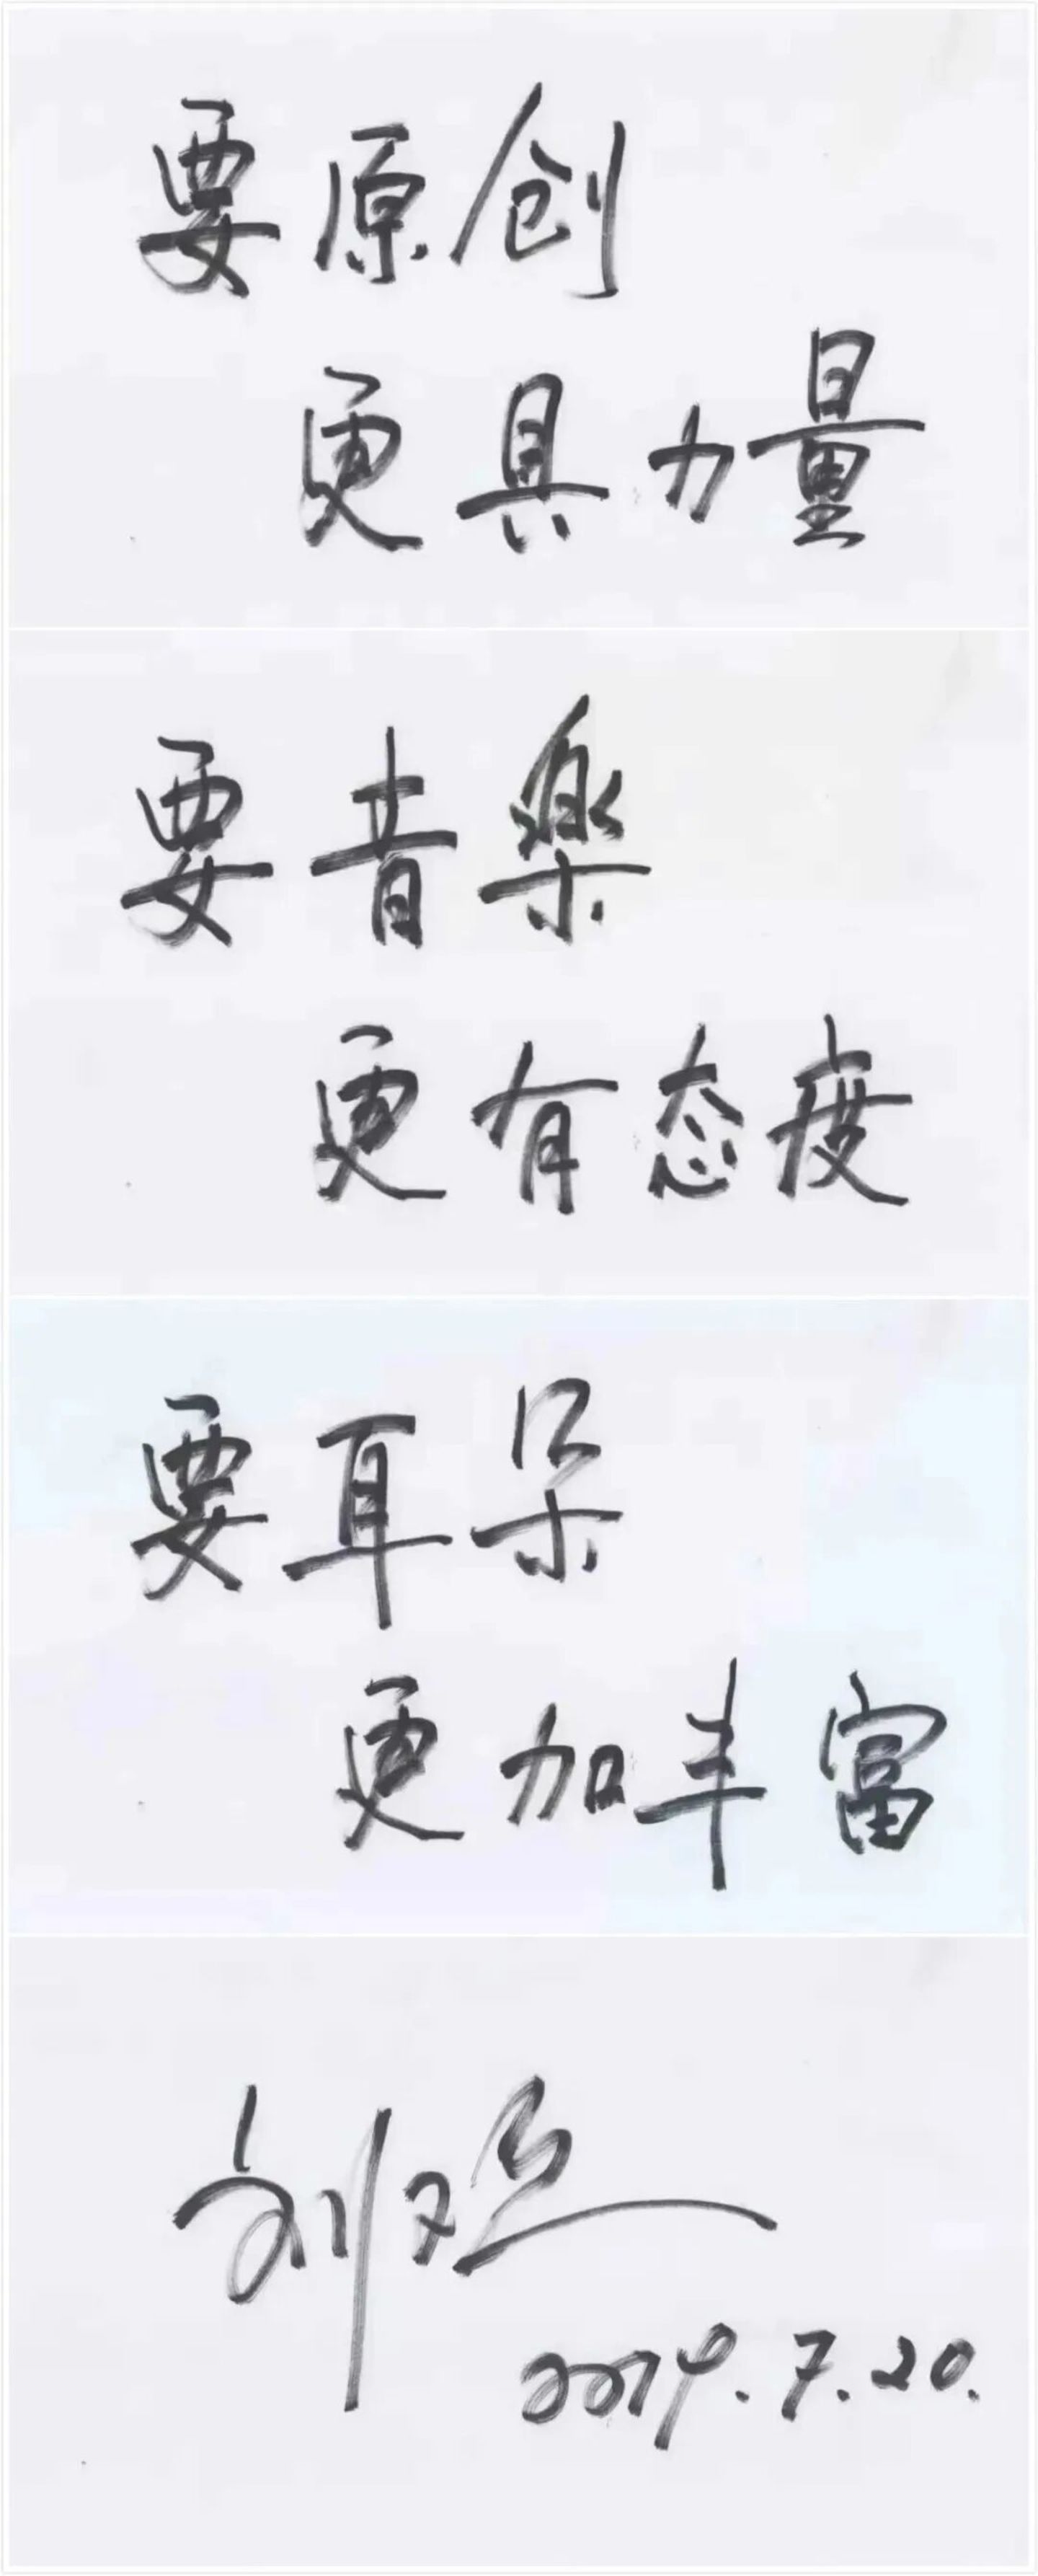 要原创
更具力量
要音樂
更有态度
要耳朵
更加丰富
刘欢
2019.7.20.